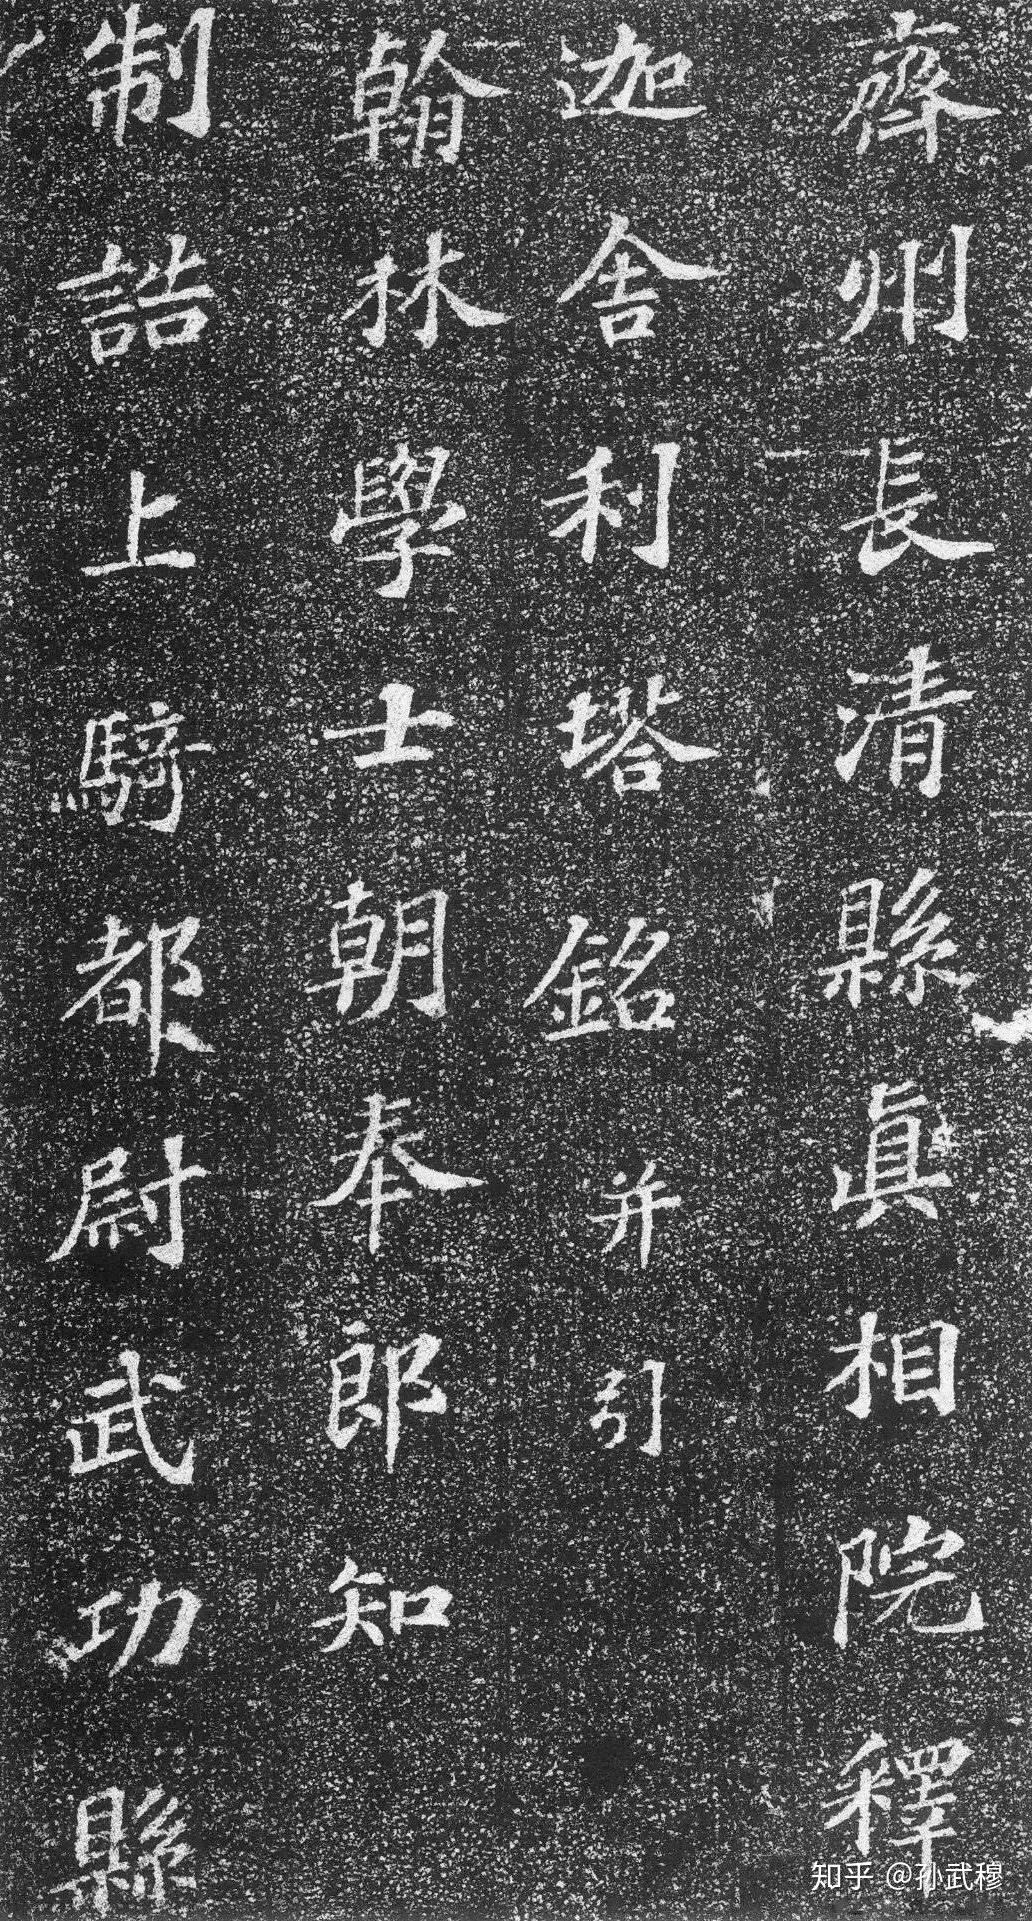 齊州長清縣眞相院釋
迦舍利塔銘并引
翰林學士朝奉郎知
制誥上騎都尉武功縣
知乎 @孙武穆